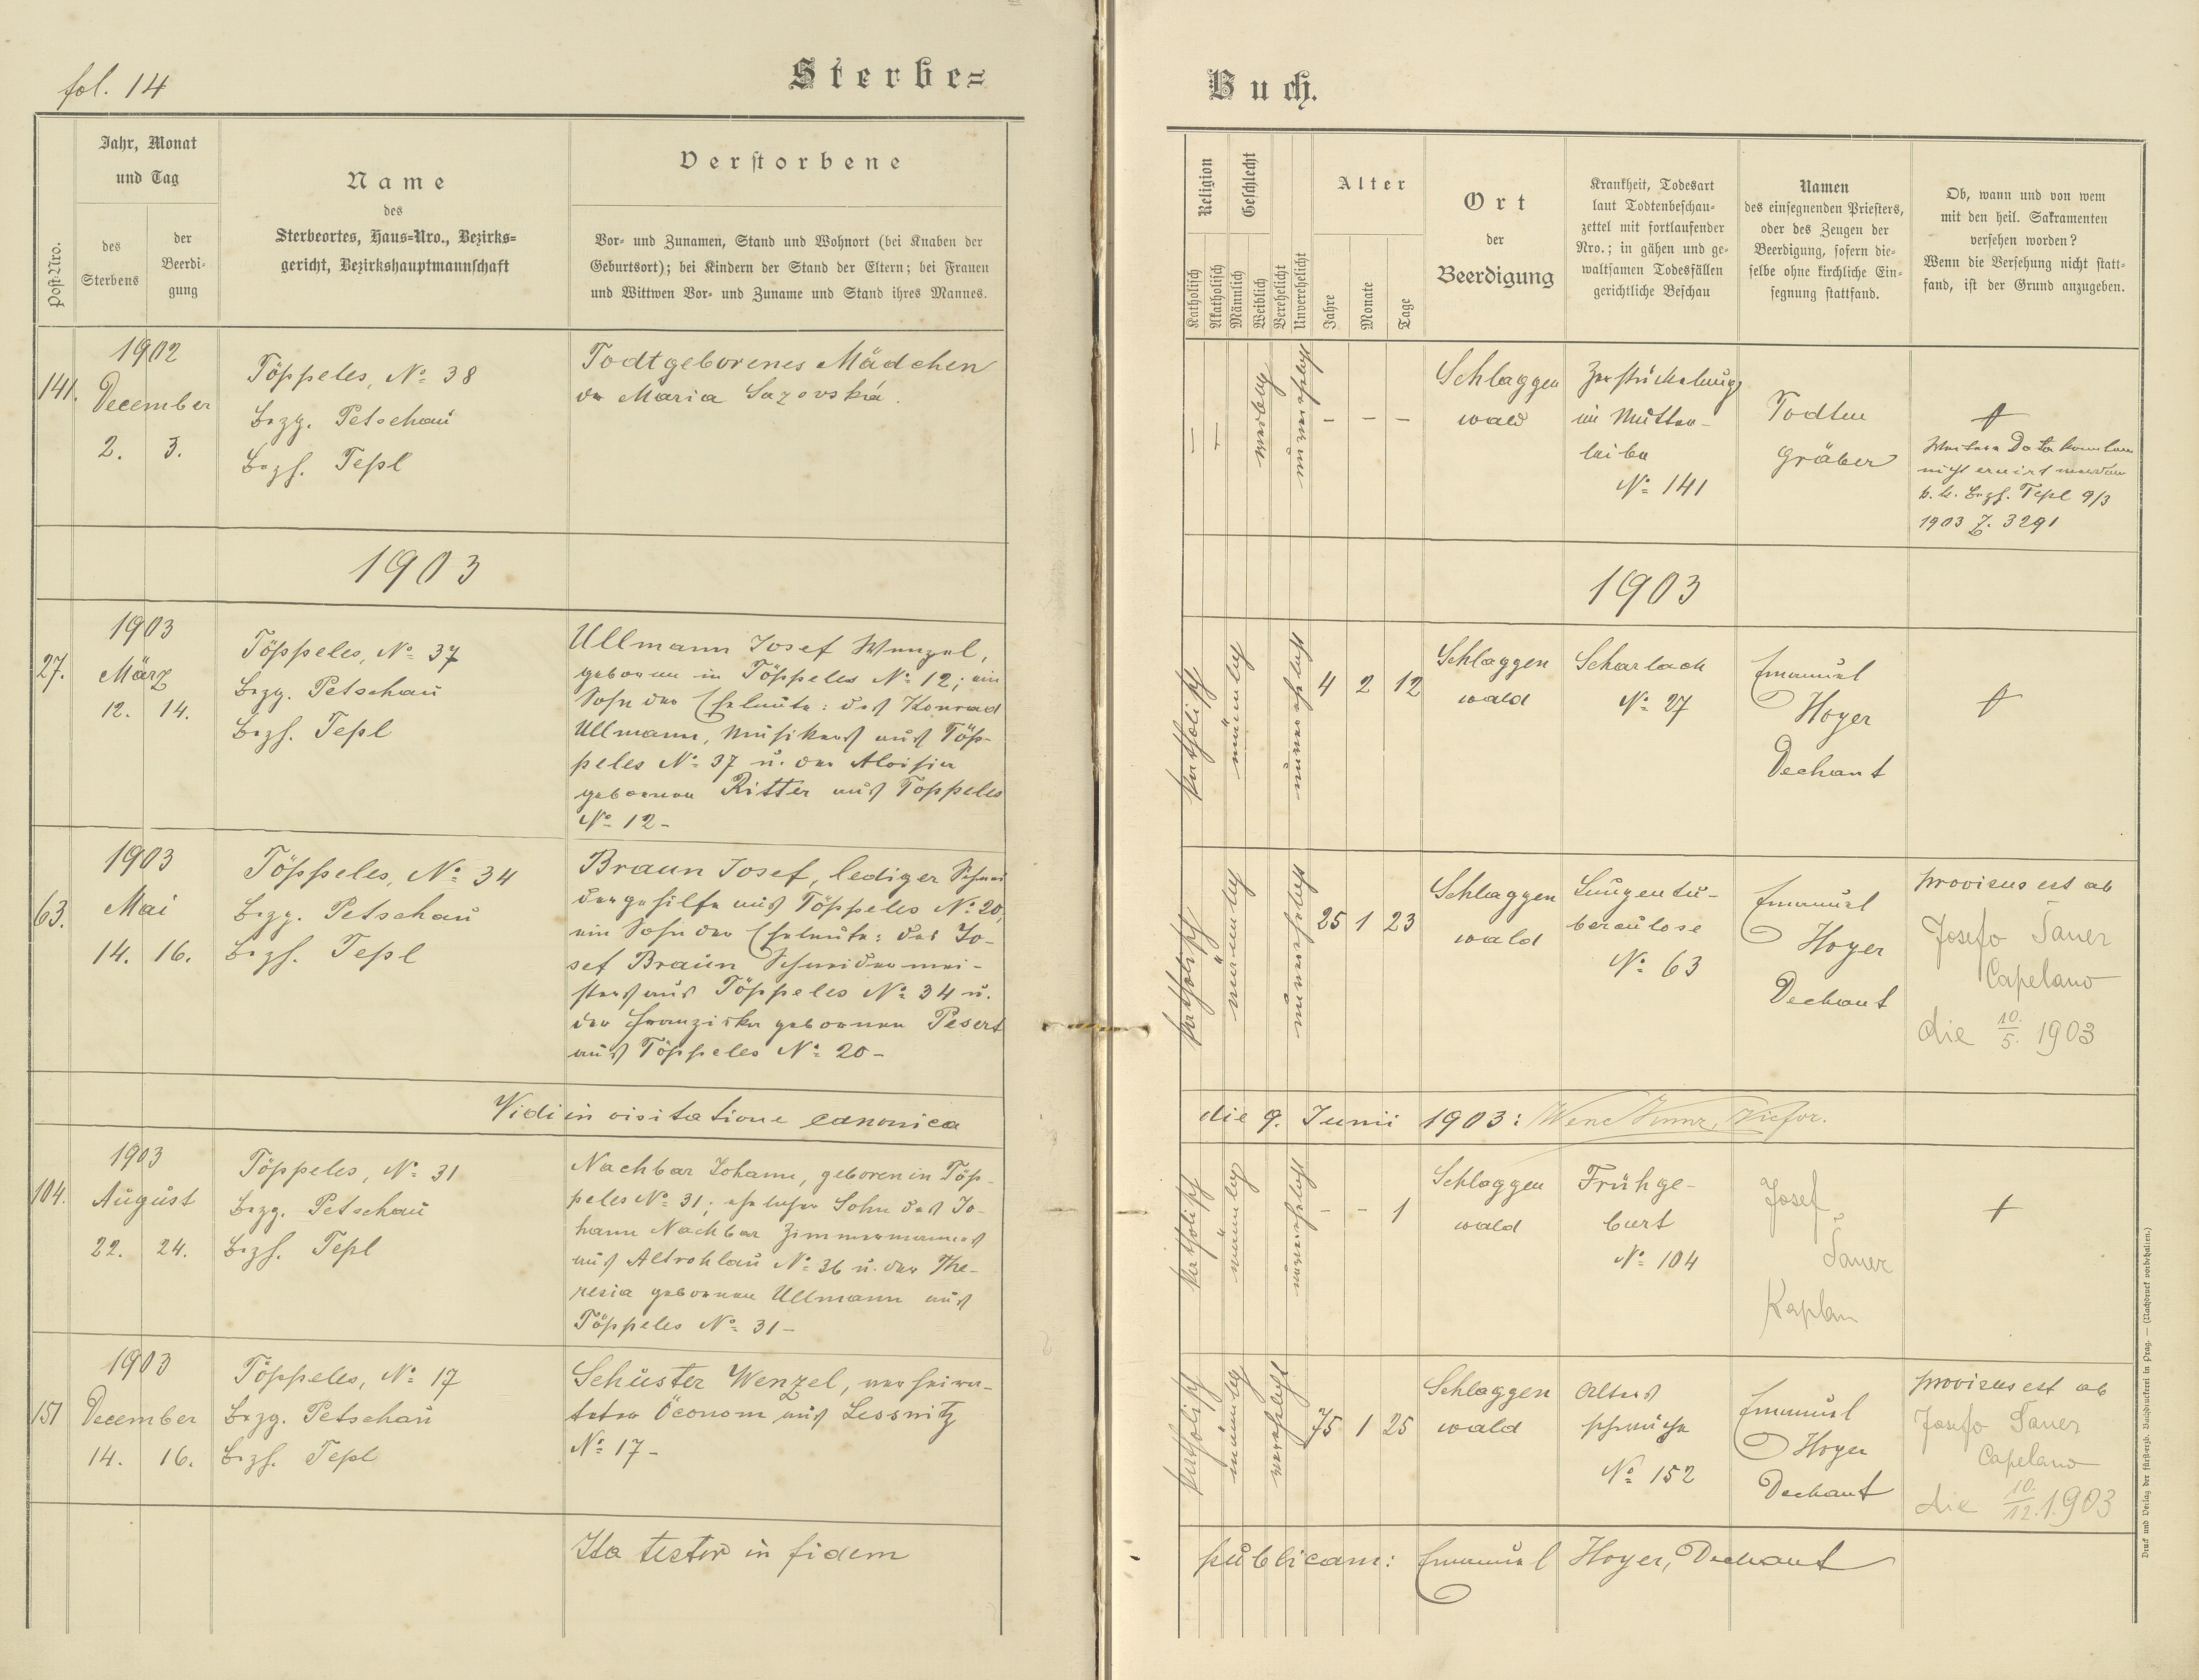 fol. 14
Sterbe=
Jahr, Monat
und Tag
Post-Nro.
des
Sterbens
der
Beerdi-
gung
Name
des
Sterbeortes, Haus=Nro., Bezirks=
gericht, Bezirkshauptmannschaft
Verstorbene
Vor- und Zunamen, Stand und Wohnort (bei Knaben der
Geburtsort); bei Kindern der Stand der Eltern; bei Frauen
und Wittwen Vor- und Zuname und Stand ihres Mannes.
141.
1902
December
2. 3.
Töppeles, No 38
Bezg. Petschau
Bezh. Tepl
Todtgeborenes Mädchen
der Maria Sazovská.
1903
27.
1903
März
12. 14.
Töppeles, No 37
Bezg. Petschau
Bezh. Tepl
Ullmann Josef Wenzel,
geboren in Töppeles No 12; ein
Sohn der Eheleute: des Konrad
Ullmann, Musikers aus Töp-
peles No 37 u. der Aloisia
geborenen Ritter aus Töppeles
No 12-
63.
1903
Mai
14. 16.
Töppeles, No 34
Bezg. Petschau
Bezh. Tepl
Braun Josef, lediger Schnei
dergehilfe aus Töppeles No 20,
ein Sohn der Eheleute: des Jo-
sef Braun Schneidermei-
sters aus Töppeles No 34 u.
der Franziska geborenen Pesert
aus Töppeles No 20-
Vidi in visitatione canonica
104.
1903
August
22. 24.
Töppeles, No 31
Bezg. Petschau
Bezh. Tepl
Nachbar Johann, geboren in Töp-
peles No 31; ehelicher Sohn des Jo-
hann Nachbar Zimmermannes
aus Altrohlau No 36 u. der The-
resia geborenen Ullmann aus
Töppeles No 31-
151
1903
December
14. 16.
Töppeles, No 17
Bezg. Petschau
Bezh. Tepl
Schuster Wenzel, verheira-
teter Öconom aus Lessnitz
No 17-
Ita testor in fidem
Buch.
Religion
Katholisch
Akatholisch
Geschlecht
Männlich
Weiblich
Verehelicht
Unverehelicht
Alter
Jahre
Monate
Tage
Ort
der
Beerdigung
Krankheit, Todesart
laut Todtenbeschau-
zettel mit fortlaufender
Nro.; in gähen und ge-
waltsamen Todesfällen
gerichtliche Beschau
Namen
des einsegnenden Priesters,
oder des Zeugen der
Beerdigung, sofern die-
selbe ohne kirchliche Ein-
segnung stattfand.
Ob, wann und von wem
mit den heil. Sakramenten
versehen worden?
Wenn die Versehung nicht statt-
fand, ist der Grund anzugeben.
— — weiblich unverehelicht – – –
Schlaggen
wald
Zerstückelung
im Mutter-
leibe
No 141
Todten
gräber
†
Weitere Data konnten
nicht eruirt werden
k. k. Bezh. Tepl 9/3
1903 Z. 3291
1903
katholisch männlich unverehelicht 4 2 12
Schlaggen
wald
Scharlach
No 27
Emanuel
Hoyer
Dechant
†
katholisch männlich unverehelicht 25 1 23
Schlaggen
wald
Lungentu-
berculose
No 63
Emanuel
Hoyer
Dechant
provisus est ab
Josefo Šauer
Capelano
die 10./5. 1903
die 9. Junii 1903:
katholisch männlich unverehelicht – – 1
Schlaggen
wald
Frühge-
burt
No 104
Josef
Šauer
Kaplan
†
katholisch männlich verehelicht 75 1 25
Schlaggen
wald
Alters
schwäche
No 152
Emanuel
Hoyer
Dechant
provisus est ab
Josefo Šauer
Capelano
die 10./12. 1903
publicam: Emanuel Hoyer, Dechant
Druck und Verlag der fürst-erzb. Buchdruckerei in Prag. — (Nachdruck vorbehalten.)